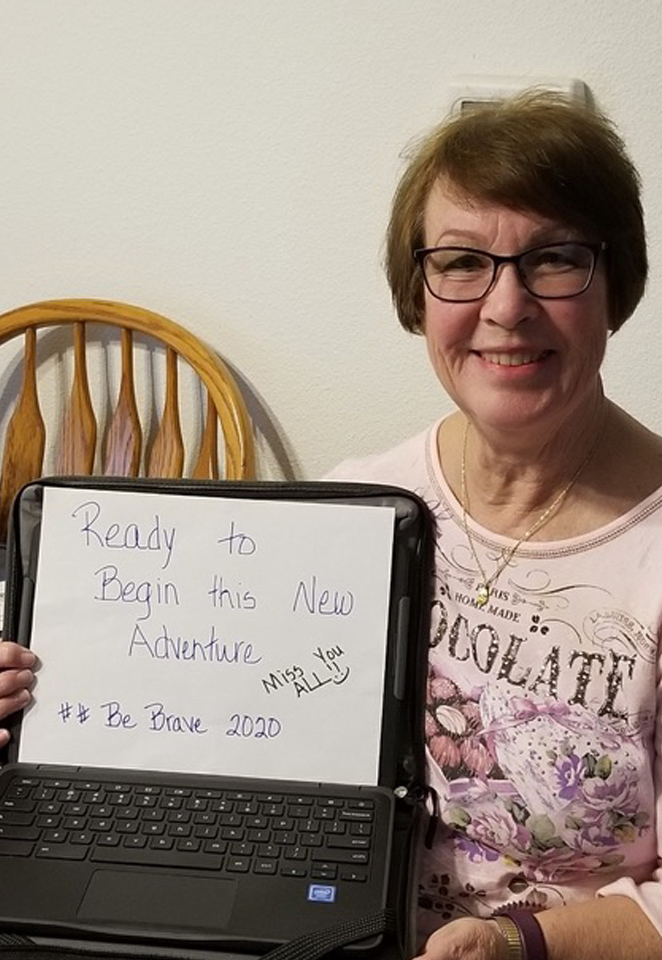 Ready to
Begin this New
Adventure
Miss You
ALL!!
## Be Brave 2020
PARIS
HOME MADE
OCOLATE
intel